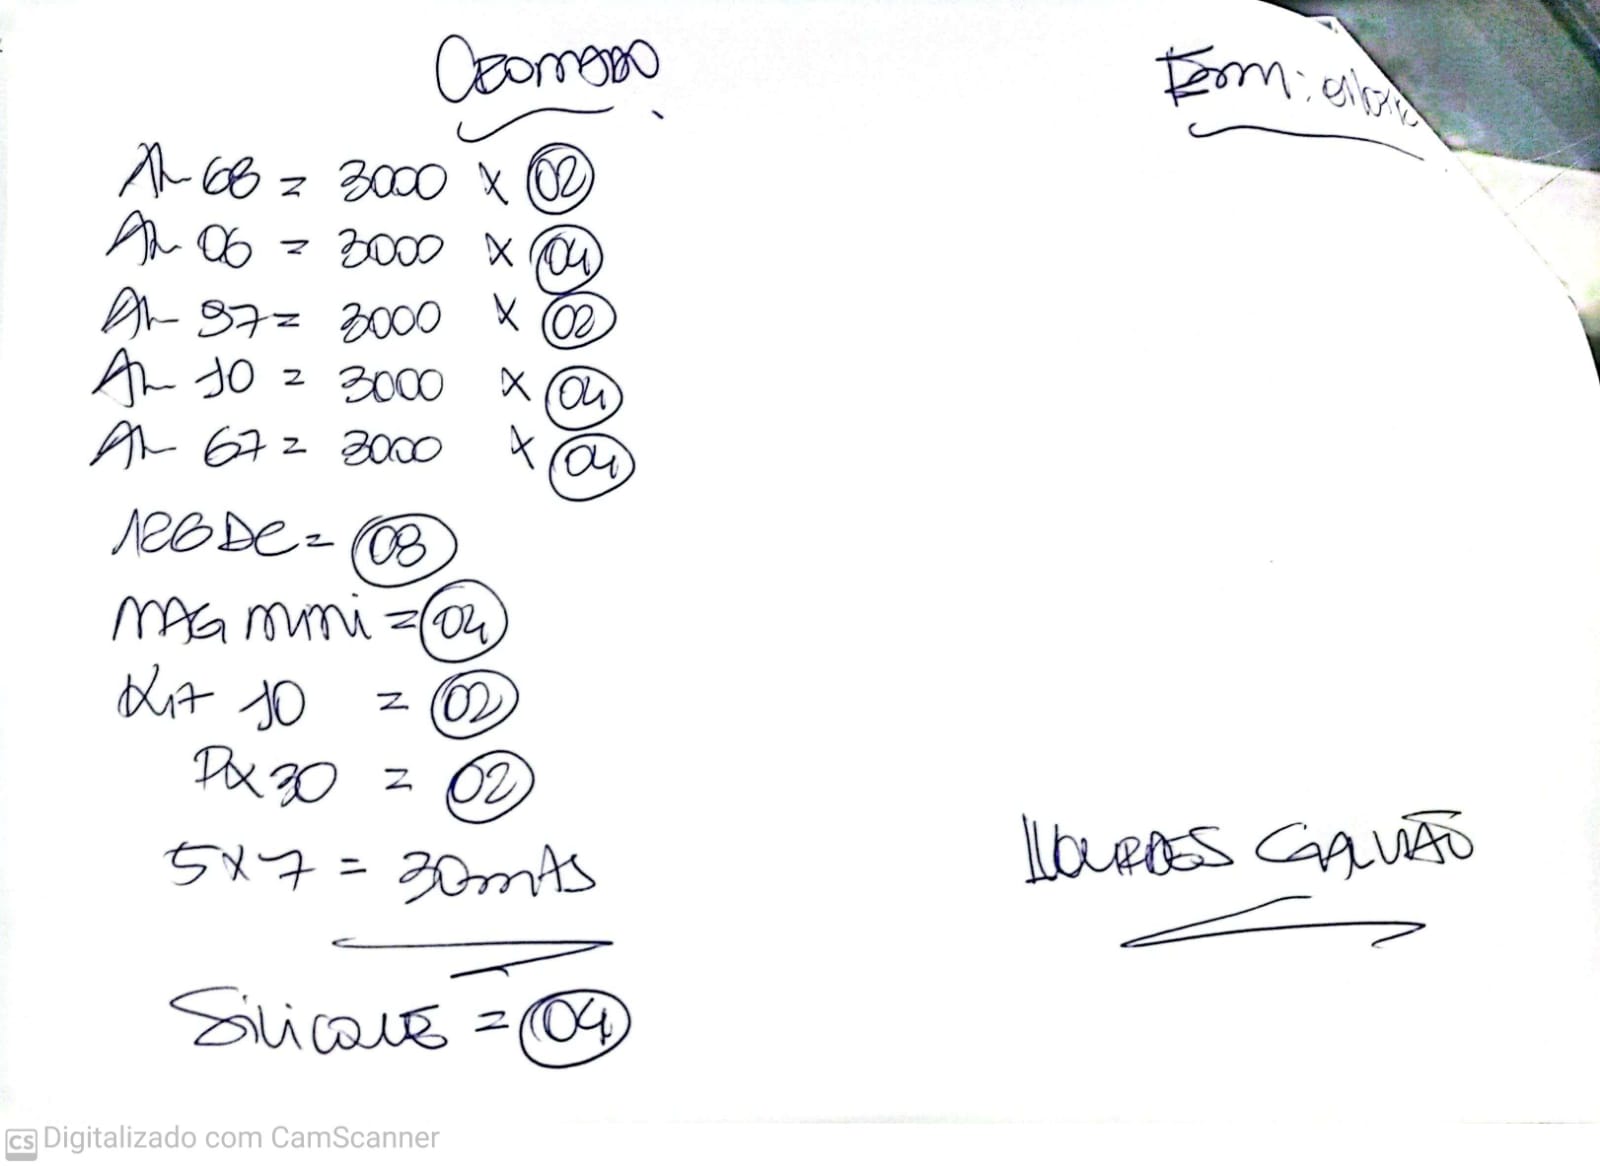 AL 68 = 3000 x 02
AL 06 = 3000 x 04
AL 97 = 3000 x 02
AL 10 = 3000 x 04
AL 67 = 3000 x 04
= 08
MAG mini = 04
Kit 10 = 02
PX 30 = 02
5 x 7 = 30 mts
Silicone = 04
LOURDES GALVÃO
CS Digitalizado com CamScanner